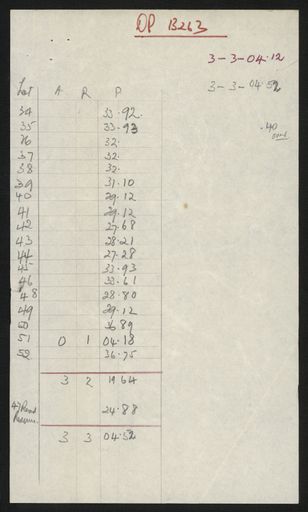 DP 13263
3-3-04.12
3-3-04.52
.40
Lot A R P
34 33.92.
35 33.93
36 32.
37 32.
38 32.
39 31.10
40 29.12
41 29.12
42 27.68
43 28.21
44 27.28
45 33.93
46 32.61
48 28.80
49 29.12
50 36.89
51 0 1 04.18
52 36.75
3 2 19.64
47 Road Reserve 24.88
3 3 04.52